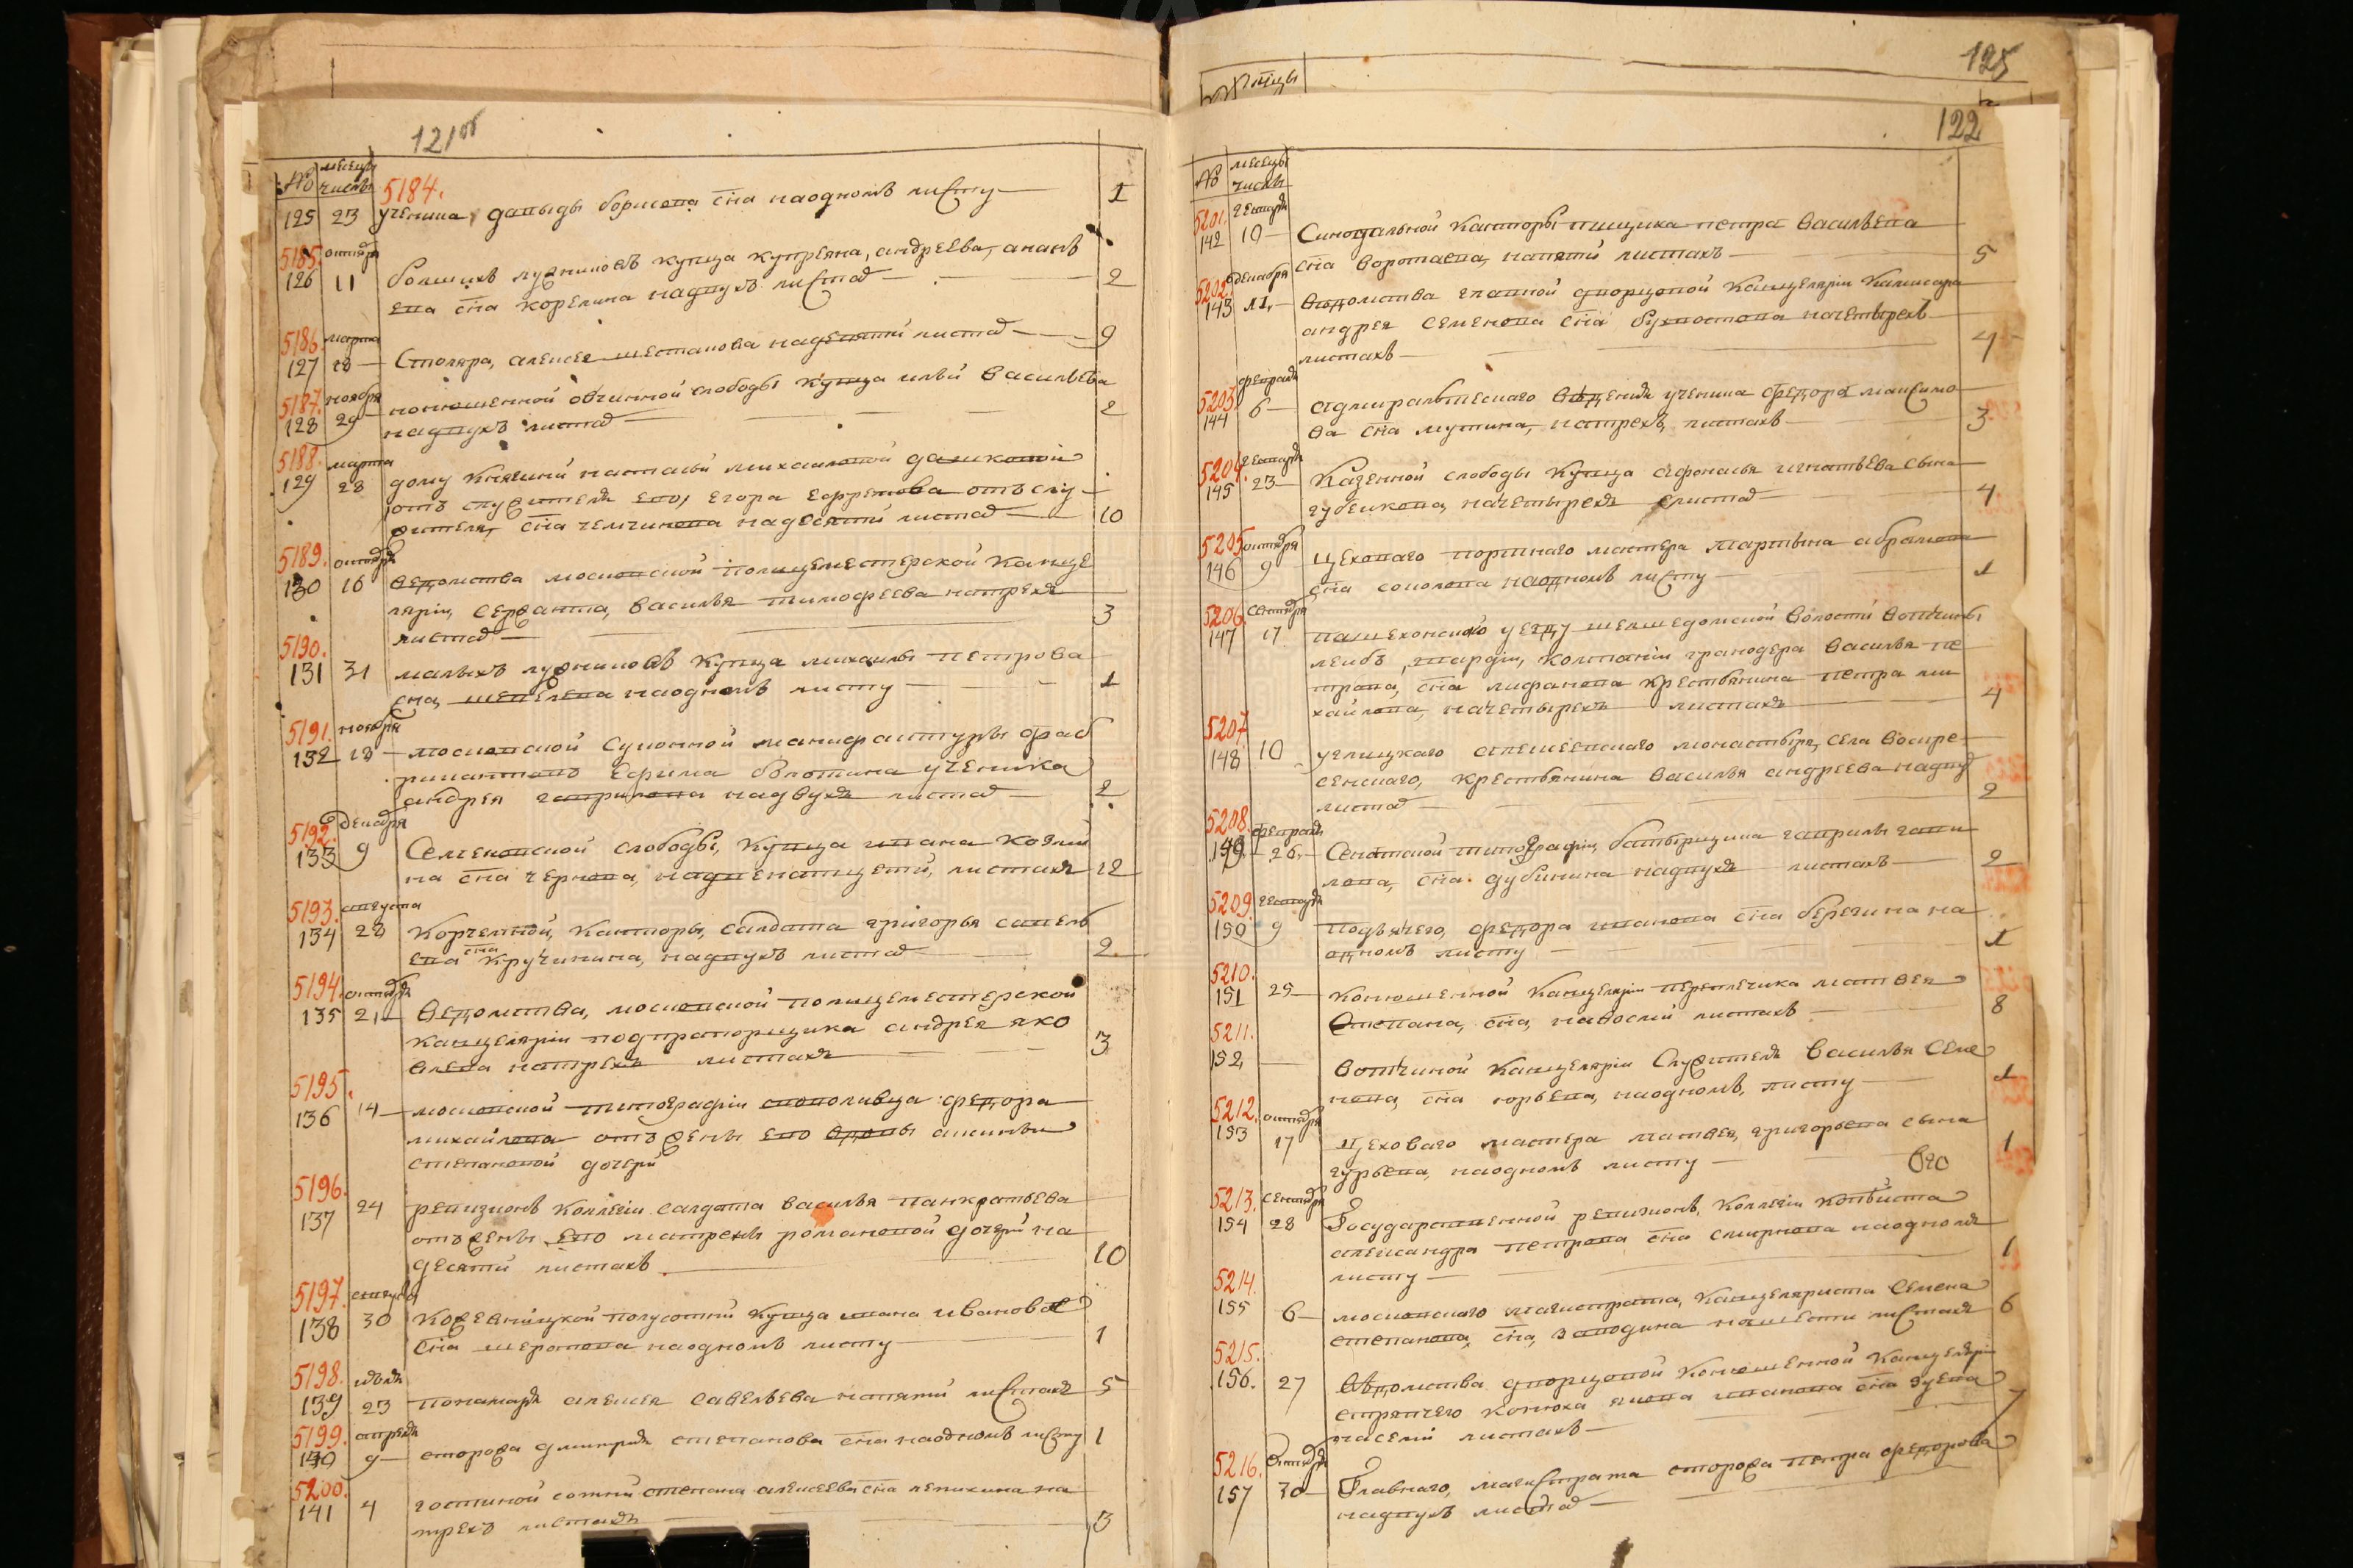 121об
№ месецы числы
5184.
125 23 ученика, давыда борисова сна наодномъ листу 1
5185. октября
126 11 болшихъ лужниковъ купца куприяна, андреева, анань
ева сна корелина надвухъ листах 2
5186. марта
127 18 Столяра, алексея шестакова надевяти листах 9
5187. ноября
128 29 конюшенной овчинной слободы купца ильи васильева
надвухъ листах 2
5188. марта
129 28 дому княгини настасьи михаиловой
отъ служителя ево, егора ефремова отъ слу
жителя, сна чемчинова надесяти листах 10
5189. октября
130 16 ведомства московской полицеместерской канце
лярiи, сержанта, василья тимофеева натрехъ
листах 3
5190.
131 31 малыхъ лужниковъ купца михаилы петрова
сна, шепелева наодномъ листу 1
5191. ноября
132 18 московской суконной манифактуры фаб
рикантовъ ефима болотина ученика
андрея гаврилова надвухъ листах 2
5192. декабря
133 9 Семеновской слободы, купца ивана козми
на сна чернова, надвенатцети, листахъ 12
5193. августа
134 28 корчемной, канторы, салдата григорья савель
ева сна кручинина, надвухъ листах 2
5194. октября
135 21 ведомства, московской полицеместерской
канцелярiи подпрапорщика андрея яко
влева натрехъ листахъ 3
5195.
136 14 московской типографiи федора
михайлова отъ жены ево вдовы аксиньи
степановой дочери
5196.
137 24 ревизионъ коллегiи салдата василья панкратьева
отъ жены ево матрены романовой дочери на
десяти листахъ 10
5197. августа
138 30 кожевницкой полусотни купца ивана иванова
сна шерапова наодномъ листу 1
5198. июля
139 23 понамаря алексея савельева напяти листахъ 5
5199. апреля
140 9 сторожа дмитрия степанова сна наодномъ листу 1
5200.
141 4 гостиной сотни степана алексеева сна лепихина на
трехъ листахъ 3
125
№ месецы
122
№ месецы числы
5201. генваря
142 10 Синодальной канторы пищика петра васильева
сна воротаева, напяти листахъ 5
5202. декабря
143 11 ведомства главной дворцовой канцелярiи камисара
андрея семенова сна бухвостова начетырехъ
листахъ 4
5203. февраля
144 6 адмиралтескаго ведения ученика федора максимо
ва сна мутина, натрехъ, листахъ 3
5204. генваря
145 23 казенной слободы купца афонасья игнатьева сына
губенкова, начетырехъ листах 4
5205 октября
146 9 цеховаго портнаго мастера мартына абрамова
сна соколова наодномъ листу 1
5206. сентября
147 17 пашехонского уезду шелшедомской волости вотчины
лейбъ, гвардiи, компанiи гранодера василья пе
трова, сна лифанова крестьянина петра ми
хаилова, начетырехъ листахъ 4
5207
148 10 углицкаго алексеевскаго монастыря, села воскре
сенскаго, крестьянина василья андреева надвух
листах 2
5208. февраля
149. 26. Сенатской типографiи, батырщика гаврилы гаври
лова, сна дубинина надвухъ листахъ 2
5209. генваря
150 9 подьячего, федора иванова сна берегина на
одномъ листу 1
5210.
151 25 конюшенной канцелярiи переплечика матвея
степана, сна, навосми листахъ 8
5211.
152, вотчиной канцелярiи служителя василья семе
нова, сна юрьева, наодномъ, листу 1
5212. октября
153 17 цеховаго мастера матвея, григорьева сына
гурьева, наодномъ листу 1
5213. сентября
154 28 Государственной ревизионъ, коллегiи копииста
александра петрова сна смирнова наодномъ
листу 1
5214.
155 6 московскаго магистрата, канцеляриста семена
степанова, сна, заводина нашести листахъ 6
5215.
156. 27 ведомства дворцовой конюшенной канцелярiи
стряпчего конюха якова иванова сна зуева
насеми листахъ 7
5216. октября
157 30 Главнаго, магистрата сторожа петра федорова
надвухъ листах